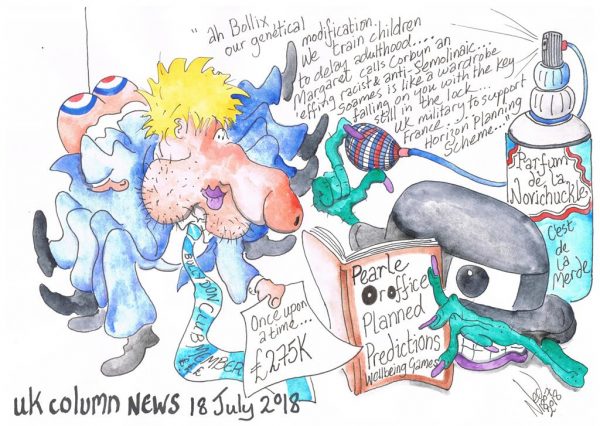 "ah Bollix
our genetical modification.
We train children
to delay adulthood....
Margaret calls Corbyn an
effing racist & anti-Semolinaic...
"Soames is like a wardrobe
falling on you with the key
still in the lock...."
UK military to support
France... Horizon Planning
Scheme..."
Parfum
de la
Novichuckle
C'est
de
La
Merde
Pearle
Or office
Planned
Predictions
Wellbeing Games
BULLDON CLUB MEMBER
Once upon
a time...
£275K
uk column NEWS 18 July 2018